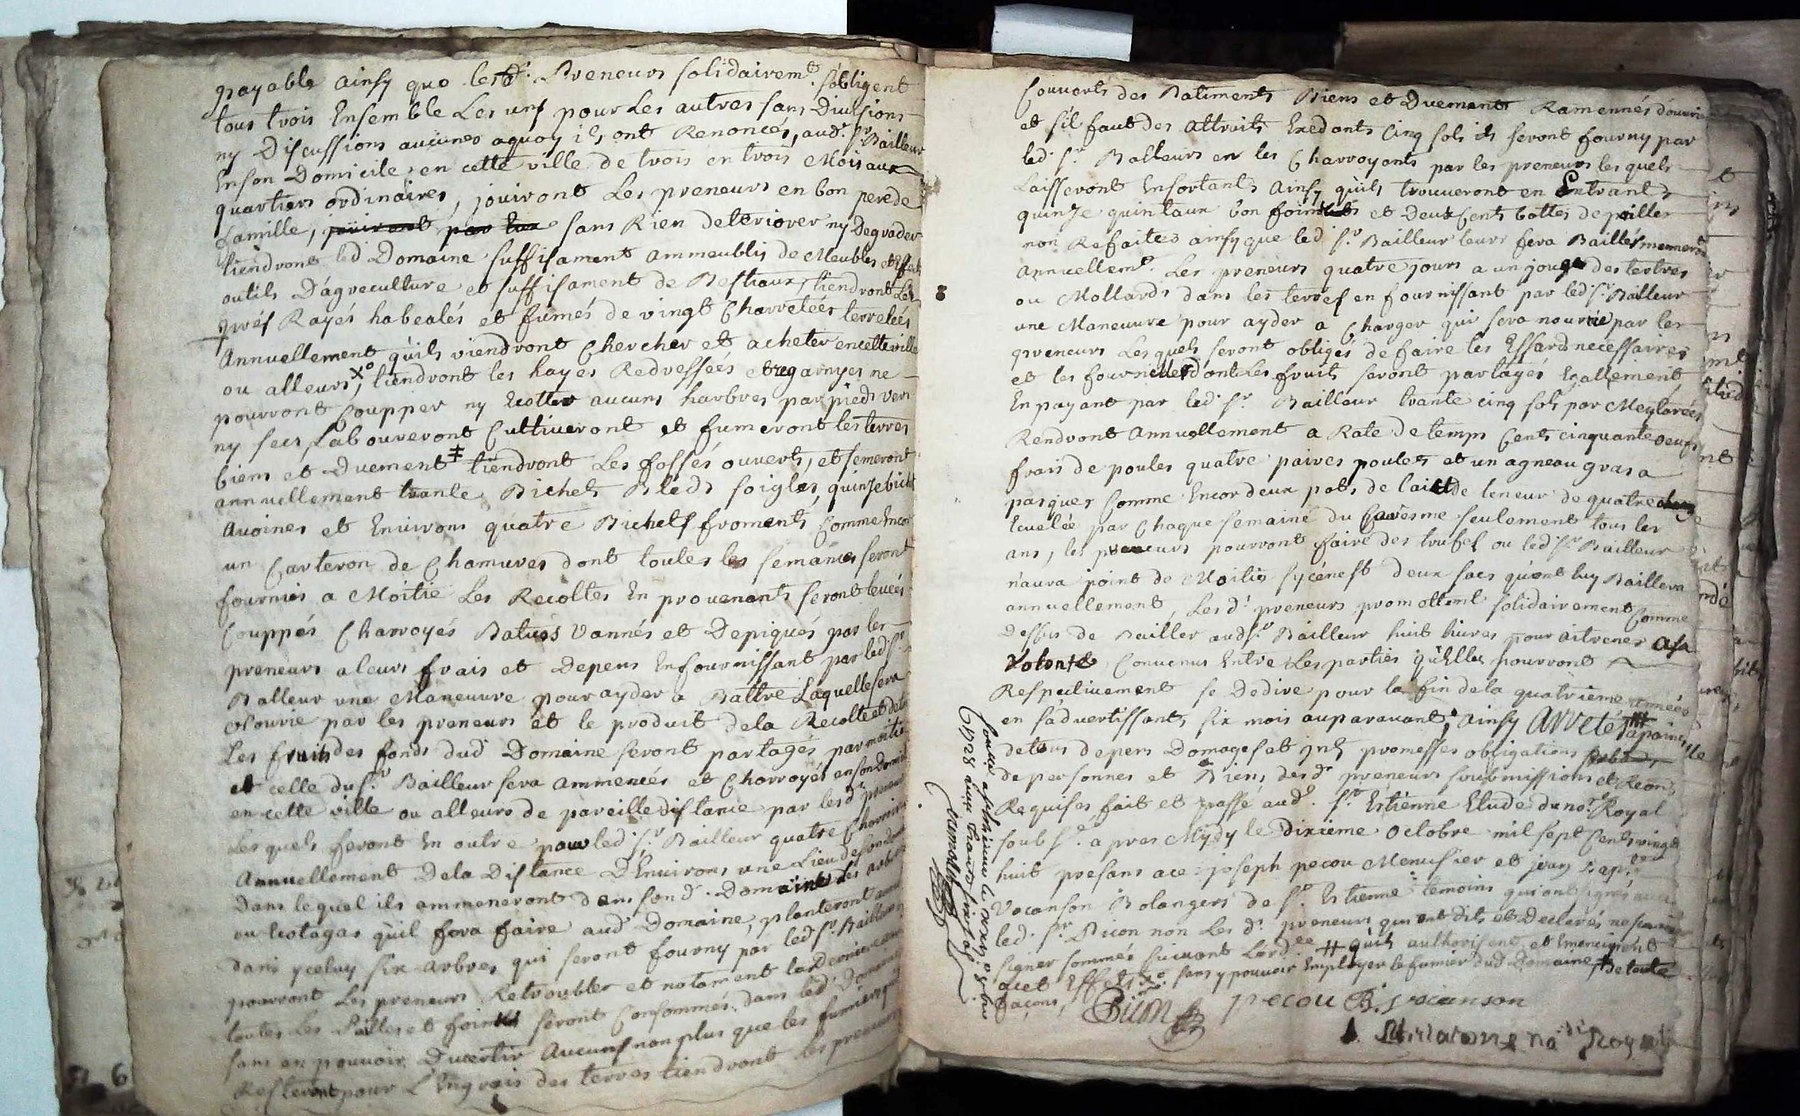 payable ainsy que lesd. Preneurs solidairemt. s'obligent
tous trois Ensemble Les uns pour Les autres sans Divisions
ny Discussions aucunes aquoy ils ont Renoncés, aud. Sr. Bailleur
Enson Domicile en cette ville de trois en trois Mois aux
quartiers ordinaires, jouiront Les preneurs en bon perede
famille, sans Rien deteriorer ny Degrader
tiendront led Domaine suffisament ammeublis de Meubles
outils D'agreculture et suffisament de Bestiaux, tiendront Les
prés Rayés habealés et fumés de vingt Charretées terreleés
Annuellement qu'ils viendront Chercher et acheter encetteville
ou alleurs, tiendront les hayes Redressées et ragarnyes ne
pourront Coupper ny Ecotter aucuns harbres par pieds vers
ny secs, Laboureront Cultiveront et fumeront les terres
biens et Duement ǂ tiendront Les fossés ouverts, et semeront
annuellement trante Bichets Bléds soigles, quinze bichets
Avoines et Environs quatre Bichets froments, Comme Encor
un Carteron de Chamures dont toutes les semances seront
fournies a Moitié Les Recoltes En provenants seront levées
Couppés Charroyés Batues Vannés et Depiqués par les
preneurs aleurs frais et Depens Enfournissant par led Sr.
Balleur une Maneuvre pour ayder a Battre Laquelle sera
Nourrie par les preneurs et le produit dela Recolte et de
Les fruits des fonds dud Domaine seront partagés par moitié
et celle du Sr. Bailleur sera ammenées et Charroyés enson Domicile
en cette ville ou alleurs de pareille distance par lesd. preneurs
Les quels feront En outre pour led. Sr. Bailleur quatre
Annuellement Dela Distance D'Environs une Lieue
Dans lequel ils ammeneront dans sond. Domaine Les arbres
qu'il fera faire aud Domaine, planteront
dans yceluy six arbres qui seront fourny par led Sr. Bailleur
pourront Les preneurs Retroubler et notament la Derniere
toutes Les Pailles et foins seront Consommés dans led. Domaine
sans en pouvoir Divertir Aucuns non plus que les fumiers qui
Resteront pour L'Engrais des terres tiendront les preneurs
Couverts des Batiments Biens et Duements Ramennés
et s'il faut des attraits Exedants Cinq sols ils seront fourny par
led. Sr. Balleurs en les Charroyants par les preneurs les quels
Laisseront Ensortants Ainsy qu'ils trouveront en Entrants
quinze quintaux bon foin et Deux Cents bottes de pailles
non Refaites ainsy que led Sr. Bailleur leurs fera Bailler
annuellemt. Les preneurs quatre jours a un jougs des tertres
ou Mollards dans les terres en fournissant par led Sr. Bailleur
une Maneuvre pour ayder a Charger qui sera nourrie par les
preneurs Lesquels seront obligés de faire les Essards necéssaires
et les fournelles dont Les fruits seront partagés Egallement
En payant par led. Sr. Bailleur trante cinq sols par Meytarées
Rendront Annuellement a Rate de temps Cents cinquante oeufs
frais de poules quatre paires poulets et un agneau gras a
pasques Comme Encor deux pots de lait de teneur de quatre
Ecuelée par Chaque semaine du Caresme seulement tous les
ans, les preneurs pourront faire des trufes ou led Sr. Bailleur
n'aura point de Moitié sy cenest deux sacs qu'ont luy Baillera
annuellement, Les d. preneurs promettent solidairement Comme
Dessus de Bailler aud Sr. Bailleur huit livres pour aitrenes asa
Volonté Convenus Entre Les parties qu'Elles pourront
Respectivement se Dedire pour la fin dela quatrieme années
en s'advertissants six mois auparavant; Ainsy Arreté
detous depens Domages et promesses obligations
de personnes et Biens desd. preneurs soubmissions et Reon.
Requises fait et passé aud. St. Estienne Etude du nore. Royal
soubs.é apres Mydy le dixieme Octobre mil sept Cents vingt
huit presans ace joseph pecou Menusier et jean Baptte.
Vocanson Bolangers de St. Estienne temoins qui ont signés avec
led. Sr. Bicon non Les d. preneurs qui ont dits et Declarés ne scavoir
signer sommés suivant Lord.ce ǂǂ qu'ils authorisent et Emencipent
acet Effet X° sans y pouvoir Employer le fumier dud Domaine ǂ
facons
Bicon pecou B. Vocanson
no.re Royal
Controllé a St. Estienne le
1728